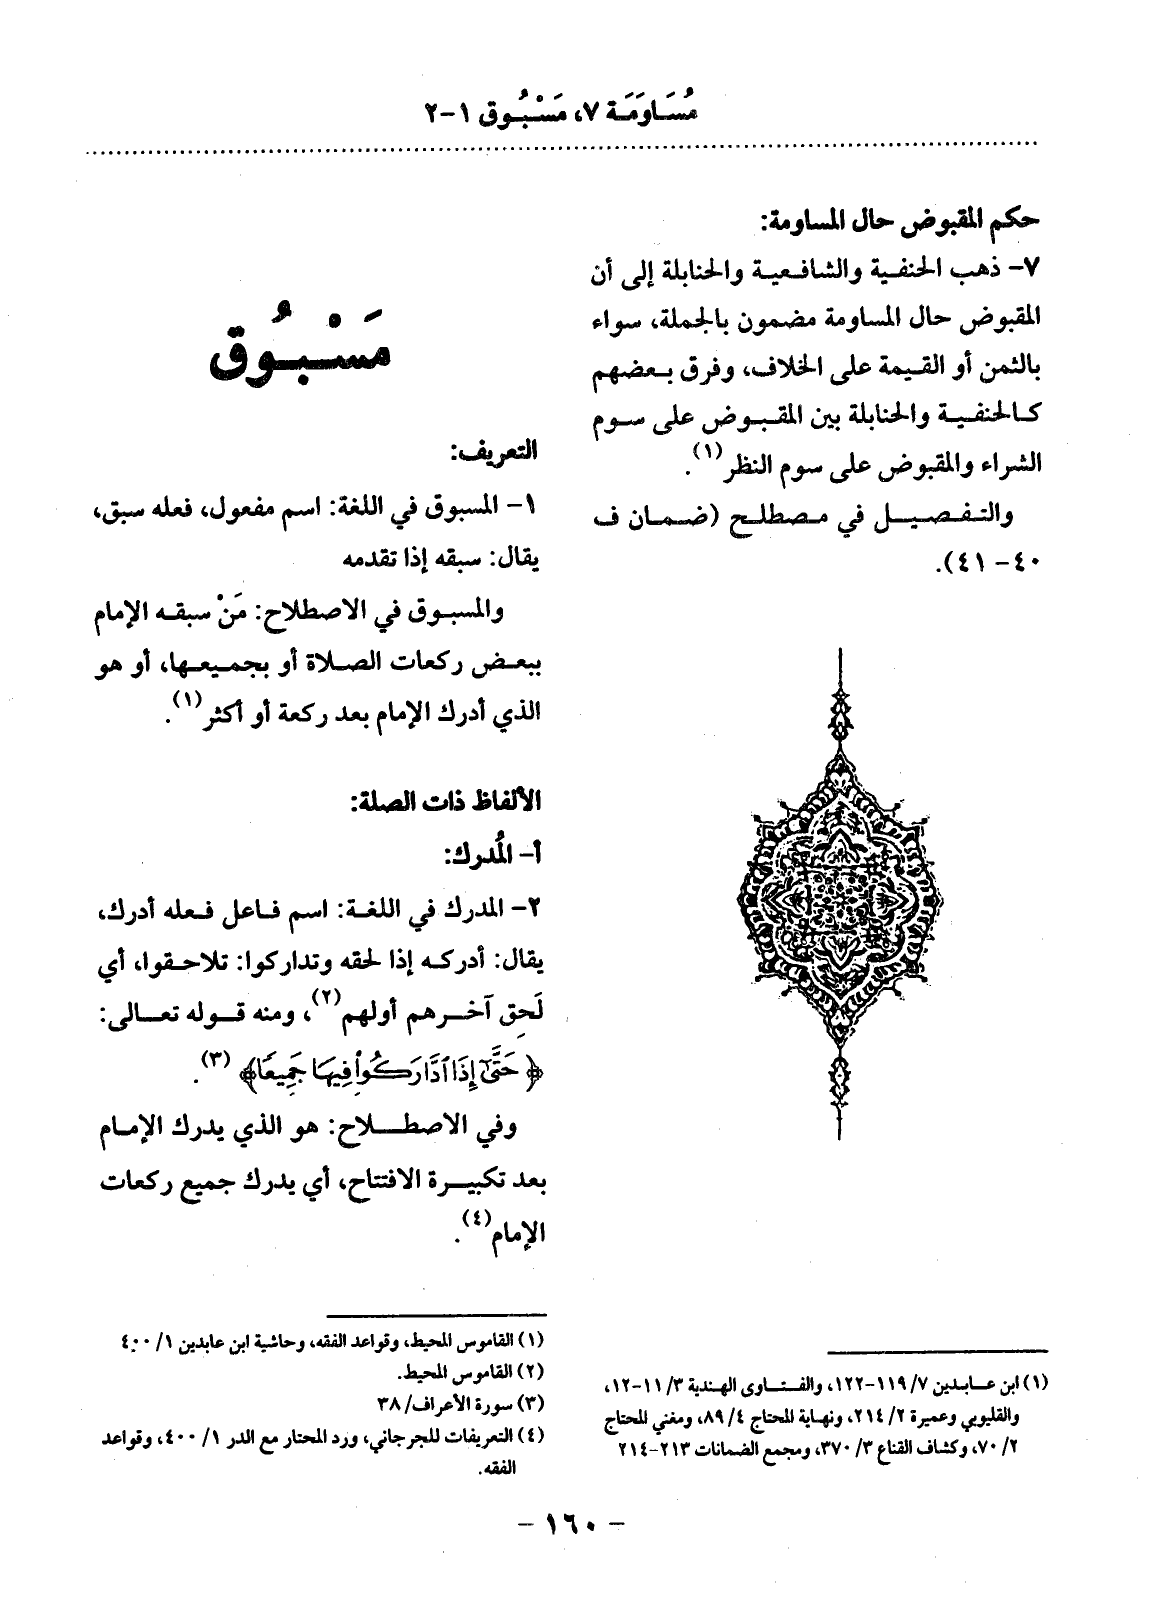 مُسَاوَمَة ٧، مَسْبُوق ١-٢
حكم المقبوض حال المساومة:
٧- ذهب الحنفية والشافعية والحنابلة إلى أن
المقبوض حال المساومة مضمون بالجملة، سواء
بالثمن أو القيمة على الخلاف، وفرق بعضهم
كالحنفية والحنابلة بين المقبوض على سوم
الشراء والمقبوض على سوم النظر(١).
والتفصيل في مصطلح (ضمان ف
٤٠- ٤١).
(١) ابن عابدين ٧/ ١١٩-١٢٢، والفتاوى الهندية ٣/ ١١-١٢،
والقليوبي وعميرة ٢/ ٢١٤، ونهاية المحتاج ٤/ ٨٩، ومغني المحتاج
٢/ ٧٠، وكشاف القناع ٣/ ٣٧٠، ومجمع الضمانات ٢١٣-٢١٤
مَسْبُوق
التعريف:
١- المسبوق في اللغة: اسم مفعول، فعله سبق،
يقال: سبقه إذا تقدمه
والمسبوق في الاصطلاح: مَنْ سبقه الإمام
ببعض ركعات الصلاة أو بجميعها، أو هو
الذي أدرك الإمام بعد ركعة أو أكثر(١).
الألفاظ ذات الصلة:
أ- المُدرك:
٢- المدرك في اللغة: اسم فاعل فعله أدرك،
يقال: أدركه إذا لحقه وتداركوا: تلاحقوا، أي
لَحِق آخرهم أولهم(٢)، ومنه قوله تعالى:
﴿حَتَّىٰٓ إِذَا ٱدَّارَكُوا۟ فِيهَا جَمِيعًا﴾(٣).
وفي الاصطلاح: هو الذي يدرك الإمام
بعد تكبيرة الافتتاح، أي يدرك جميع ركعات
الإمام(٤).
(١) القاموس المحيط، وقواعد الفقه، وحاشية ابن عابدين ١/ ٤٠٠
(٢) القاموس المحيط.
(٣) سورة الأعراف/ ٣٨
(٤) التعريفات للجرجاني، ورد المحتار مع الدر ١/ ٤٠٠، وقواعد
الفقه.
- ١٦٠ -